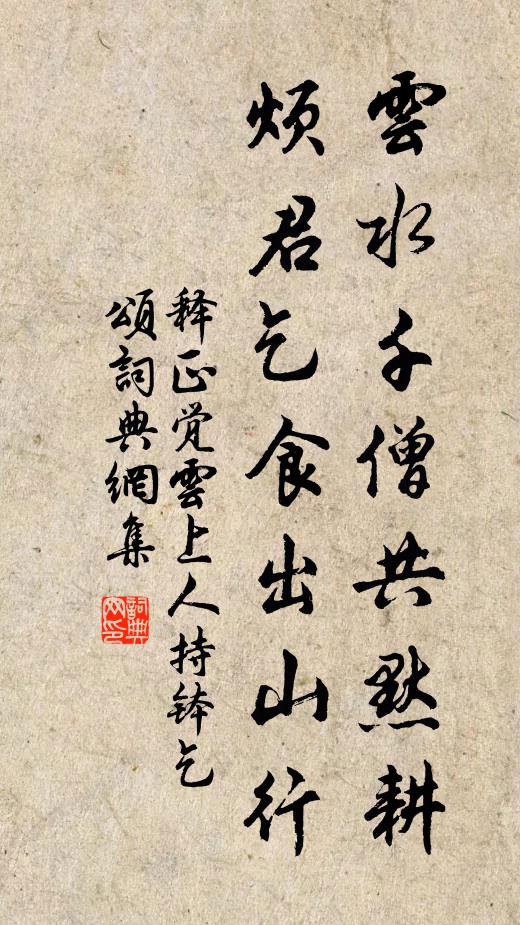 雲水千僧共默耕
煩君乞食出山行
释正觉雲上人持钵乞
頌詞典網集
詞典
网印